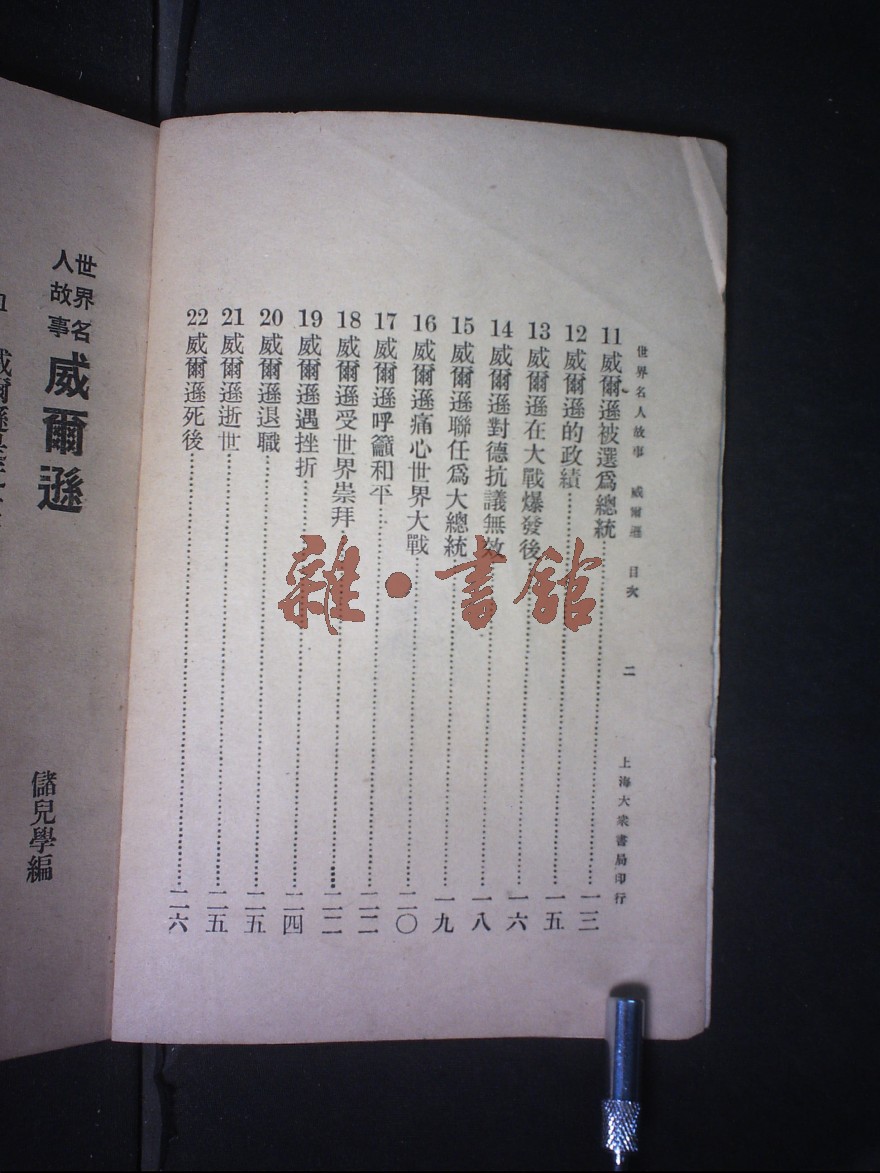 世界名人故事　威爾遜　目次　二　上海大衆書局印行
11威爾遜被選爲總統……一三
12威爾遜的政績……一五
13威爾遜在大戰爆發後……一六
14威爾遜對德抗議無效……一八
15威爾遜聯任爲大總統……一九
16威爾遜痛心世界大戰……二〇
17威爾遜呼籲和平……二二
18威爾遜受世界崇拜……二二
19威爾遜遇挫折……二四
20威爾遜退職……二五
21威爾遜逝世……二五
22威爾遜死後……二六
雜·書館
世界名人故事
威爾遜
儲兒學編